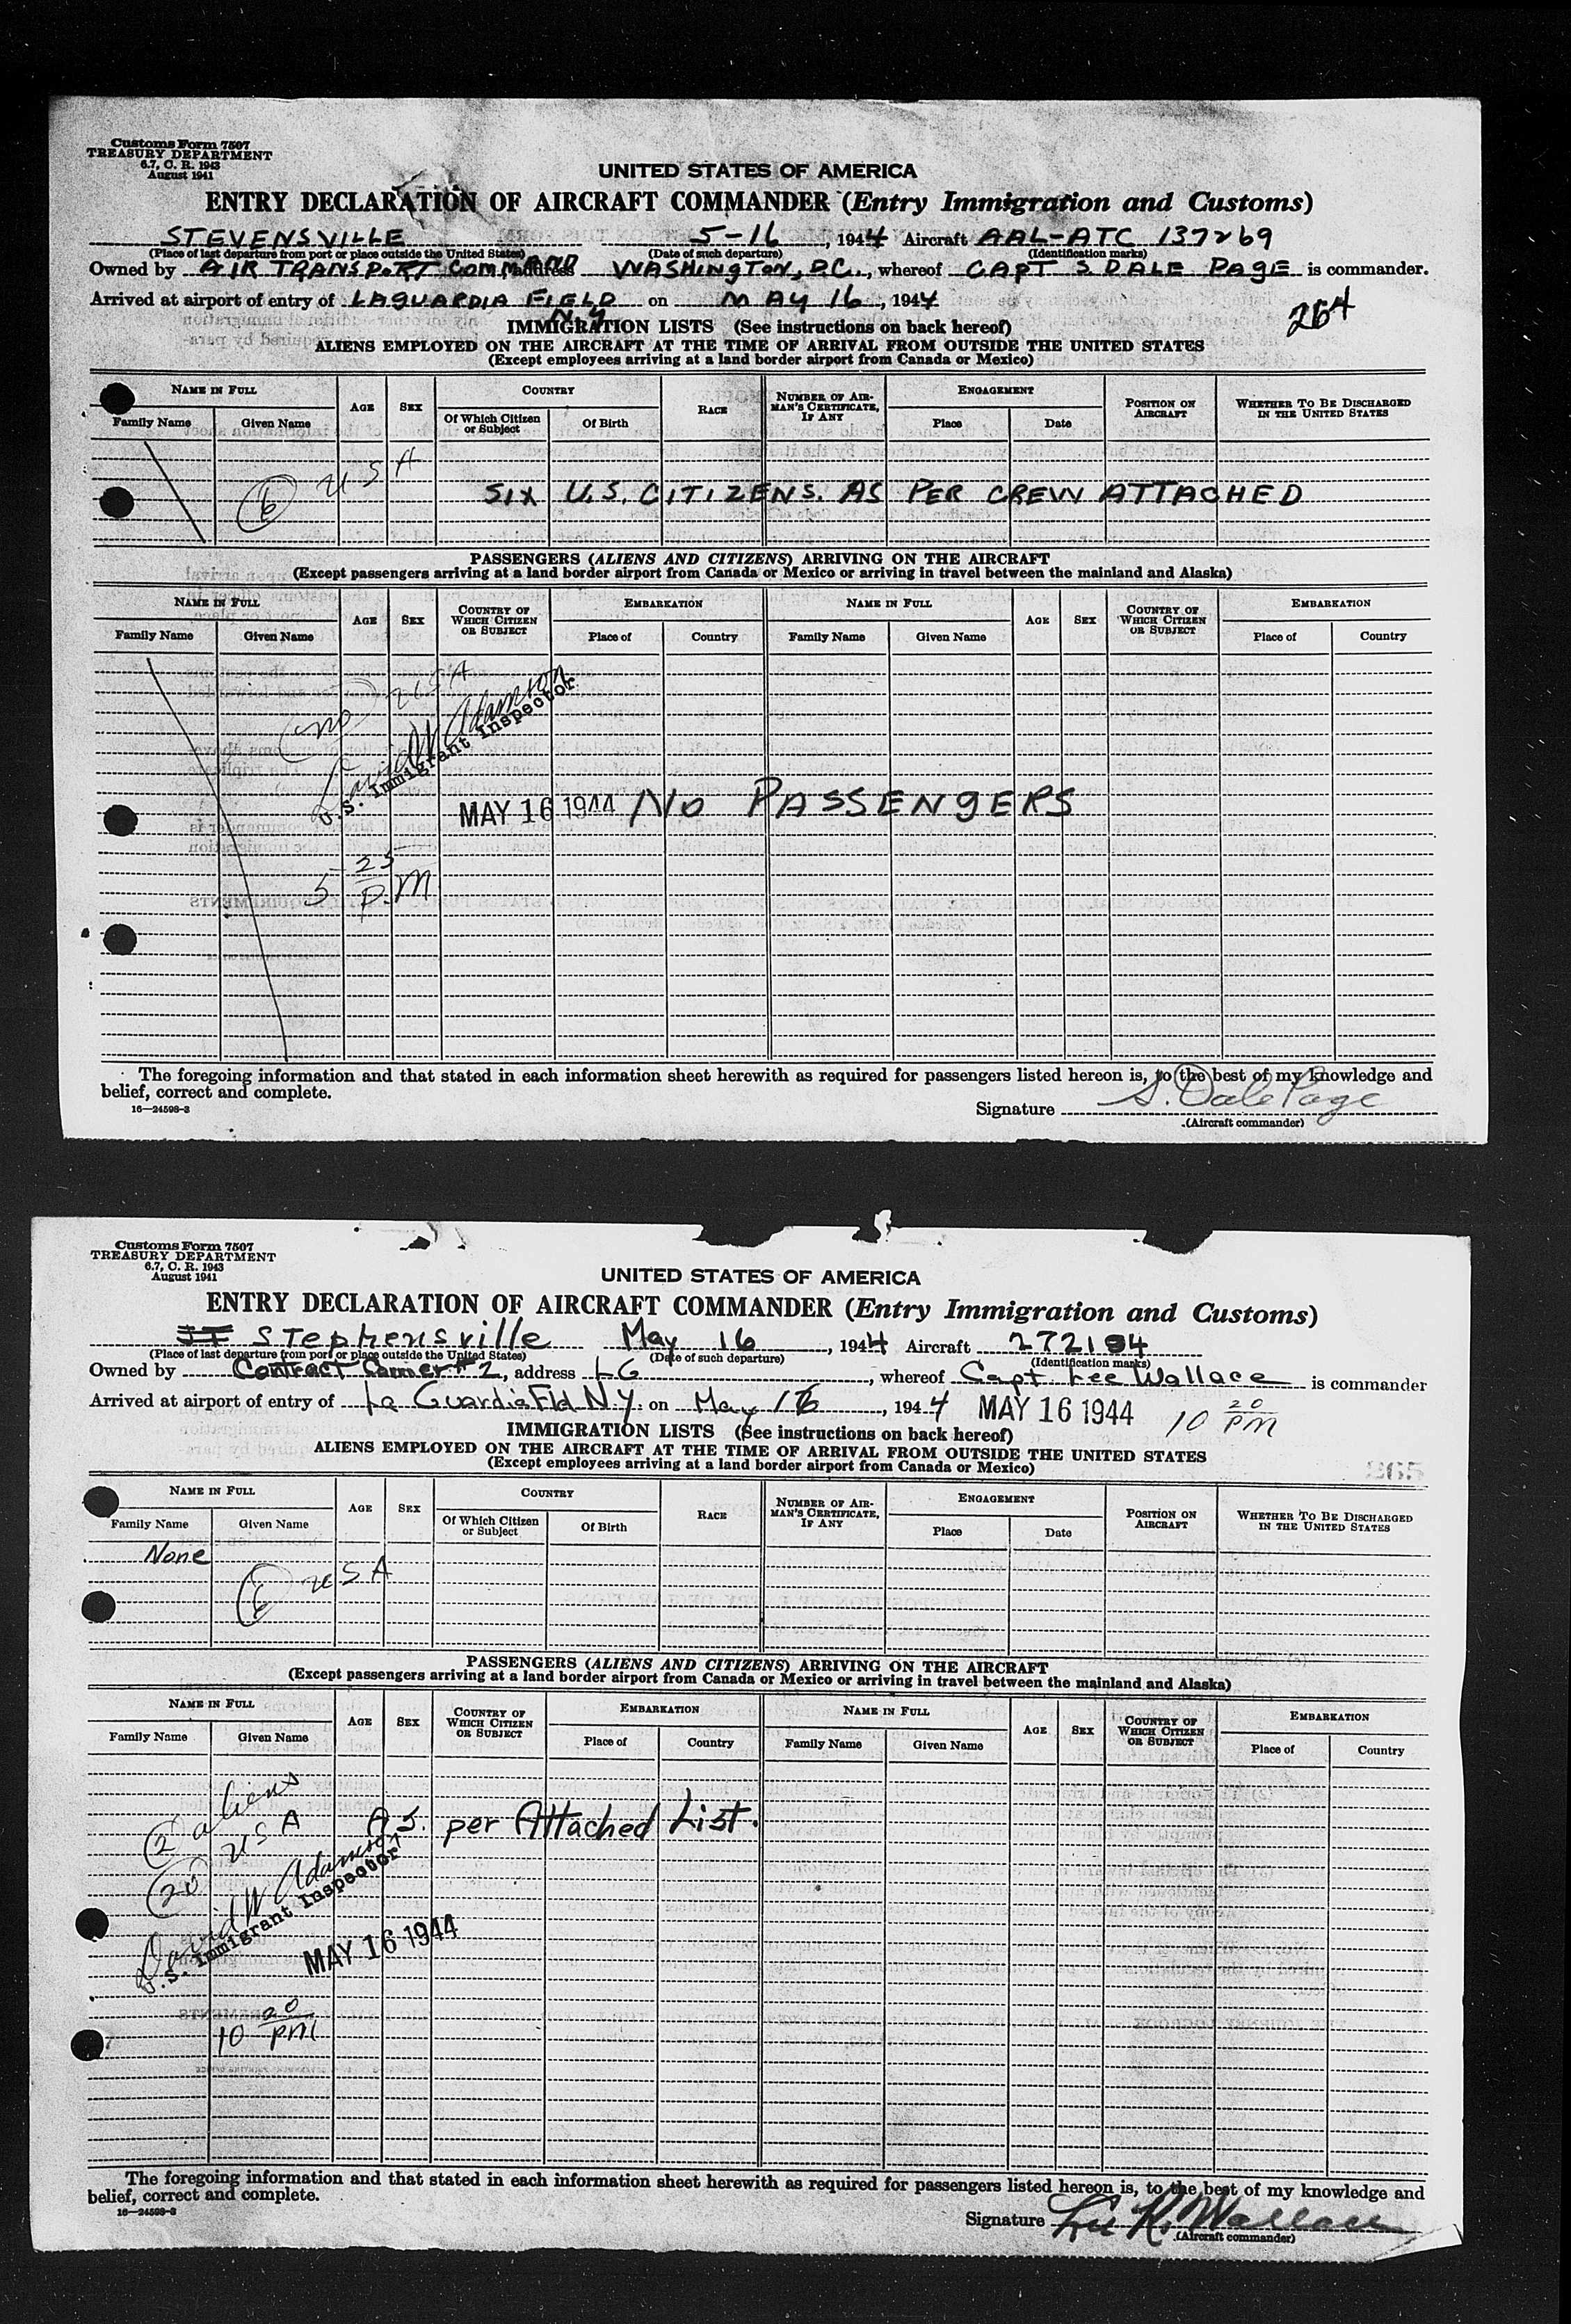 Customs Form 7507
TREASURY DEPARTMENT
6.7, C. R. 1943
August 1941
UNITED STATES OF AMERICA
ENTRY DECLARATION OF AIRCRAFT COMMANDER (Entry Immigration and Customs)
STEVENSVILLE 5-16, 1944 Aircraft AAL-ATC 137269
(Place of last departure from port or place outside the United States) (Date of such departure) (Identification marks)
Owned by AIR TRANSPORT COMMAND, address WASHINGTON, D.C., whereof CAPT S DALE PAGE is commander.
Arrived at airport of entry of LAGUARDIA FIELD N.Y on MAY 16, 1944
264
IMMIGRATION LISTS (See instructions on back hereof)
ALIENS EMPLOYED ON THE AIRCRAFT AT THE TIME OF ARRIVAL FROM OUTSIDE THE UNITED STATES
(Except employees arriving at a land border airport from Canada or Mexico)
NAME IN FULL AGE SEX COUNTRY RACE NUMBER OF AIRMAN'S CERTIFICATE, IF ANY ENGAGEMENT POSITION ON AIRCRAFT WHETHER TO BE DISCHARGED IN THE UNITED STATES
Family Name Given Name Of Which Citizen or Subject Of Birth Place Date
6 USA
SIX U.S. CITIZENS. AS PER CREW ATTACHED
PASSENGERS (ALIENS AND CITIZENS) ARRIVING ON THE AIRCRAFT
(Except passengers arriving at a land border airport from Canada or Mexico or arriving in travel between the mainland and Alaska)
NAME IN FULL AGE SEX COUNTRY OF WHICH CITIZEN OR SUBJECT EMBARKATION NAME IN FULL AGE SEX COUNTRY OF WHICH CITIZEN OR SUBJECT EMBARKATION
Family Name Given Name Place of Country Family Name Given Name Place of Country
(no) USA
David W Adamson
U.S. Immigrant Inspector
MAY 16 1944 NO PASSENGERS
5 25 P.M
The foregoing information and that stated in each information sheet herewith as required for passengers listed hereon is, to the best of my knowledge and
belief, correct and complete.
16—24598-2
Signature S. Dale Page
(Aircraft commander)
Customs Form 7507
TREASURY DEPARTMENT
6.7, C. R. 1943
August 1941
UNITED STATES OF AMERICA
ENTRY DECLARATION OF AIRCRAFT COMMANDER (Entry Immigration and Customs)
Stephensville May 16, 1944 Aircraft 272184
(Place of last departure from port or place outside the United States) (Date of such departure) (Identification marks)
Owned by Contract Carrier #2, address LG, whereof Capt. Lee Wallace is commander
Arrived at airport of entry of La Guardia Fld N.Y. on May 16, 1944 MAY 16 1944 10 20 PM
IMMIGRATION LISTS (See instructions on back hereof)
ALIENS EMPLOYED ON THE AIRCRAFT AT THE TIME OF ARRIVAL FROM OUTSIDE THE UNITED STATES
(Except employees arriving at a land border airport from Canada or Mexico)
NAME IN FULL AGE SEX COUNTRY RACE NUMBER OF AIRMAN'S CERTIFICATE, IF ANY ENGAGEMENT POSITION ON AIRCRAFT WHETHER TO BE DISCHARGED IN THE UNITED STATES
Family Name Given Name Of Which Citizen or Subject Of Birth Place Date
None
6 USA
PASSENGERS (ALIENS AND CITIZENS) ARRIVING ON THE AIRCRAFT
(Except passengers arriving at a land border airport from Canada or Mexico or arriving in travel between the mainland and Alaska)
NAME IN FULL AGE SEX COUNTRY OF WHICH CITIZEN OR SUBJECT EMBARKATION NAME IN FULL AGE SEX COUNTRY OF WHICH CITIZEN OR SUBJECT EMBARKATION
Family Name Given Name Place of Country Family Name Given Name Place of Country
2 aliens
20 USA
As. per Attached List.
David W Adamson
U.S. Immigrant Inspector
MAY 16 1944
10 20 PM
The foregoing information and that stated in each information sheet herewith as required for passengers listed hereon is, to the best of my knowledge and
belief, correct and complete.
16—24598-2
Signature Lee K. Wallace
(Aircraft commander)